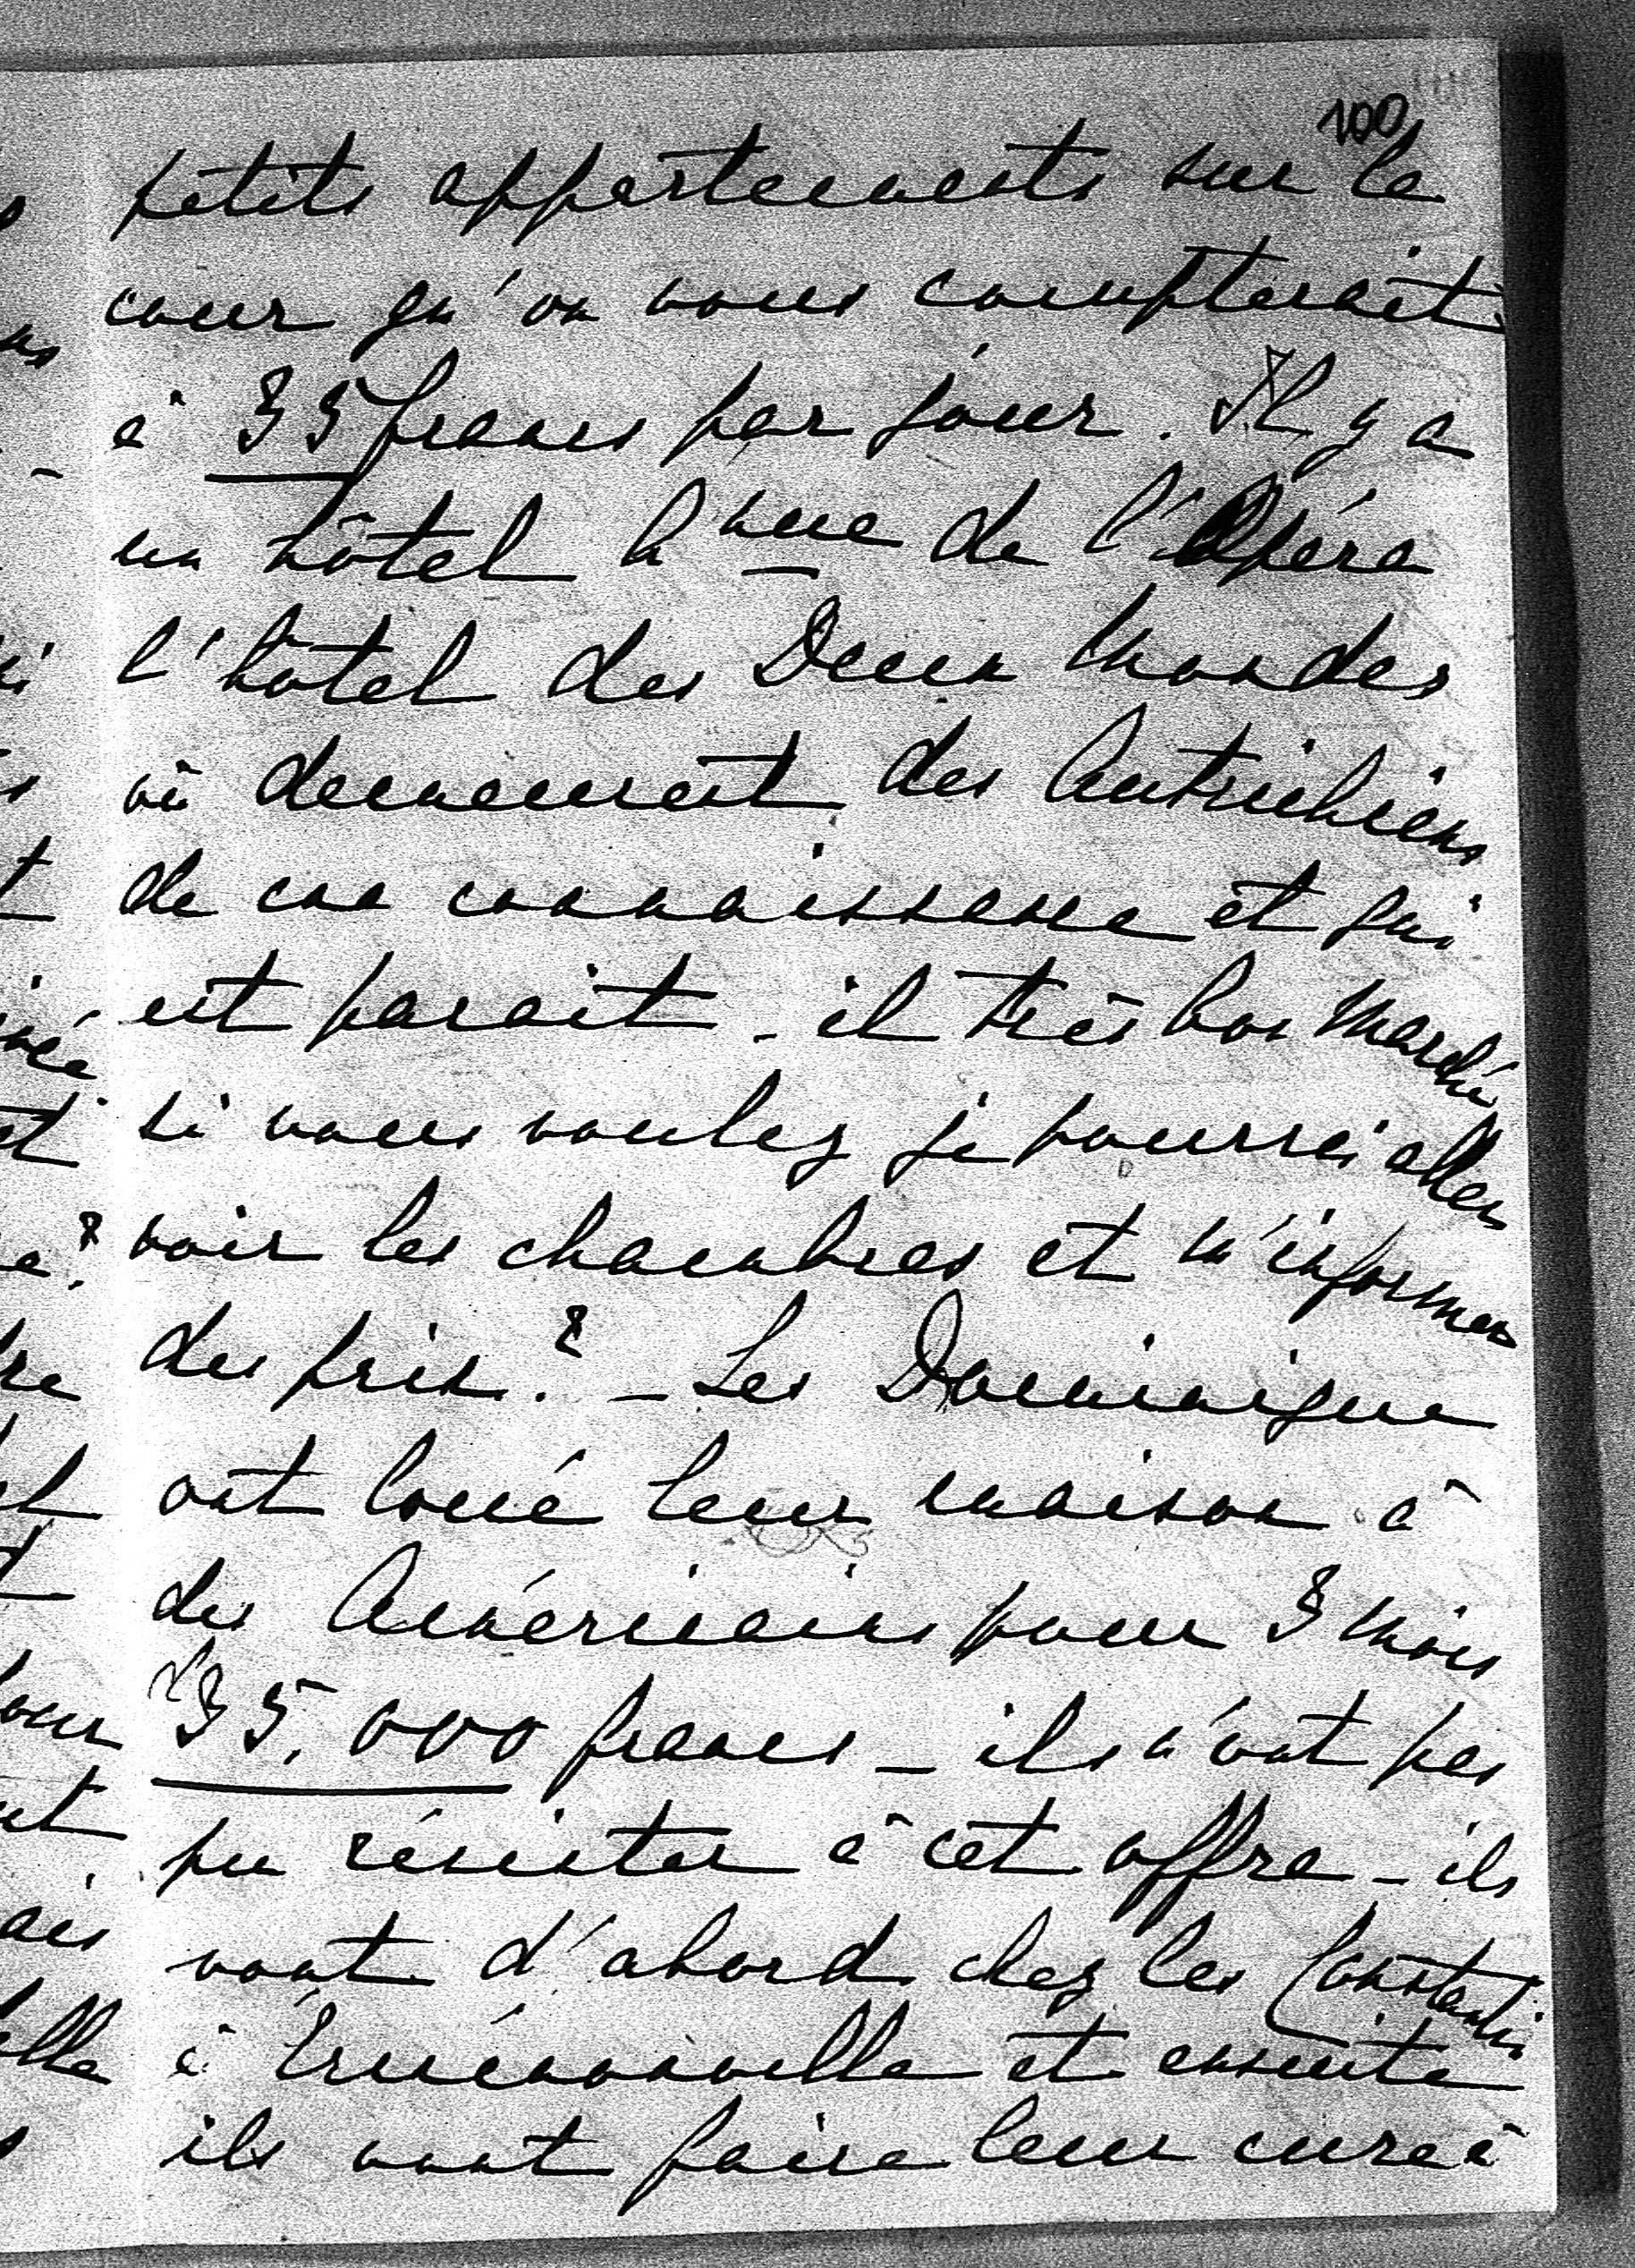 100
petits appartements sur la
cour qu'on vous compterait
à 35 francs par jour. Il y a
un hôtel Ave de l'Opéra
l'hôtel des Deux Mondes
où demeurent des Autrichiens
de ma connaissance et qui
est parait-il très bon marché
si vous voulez je pourrai aller
voir les chambres et m'informer
des prix? - Les Dominique
ont loué leur maison à
des Américains pour 3 mois
35.000 francs - ils n'ont pas
pu résister à cet offre - ils
vont d'abord chez les Constantin
à Ermenonville et ensuite
ils vont faire leur cure à